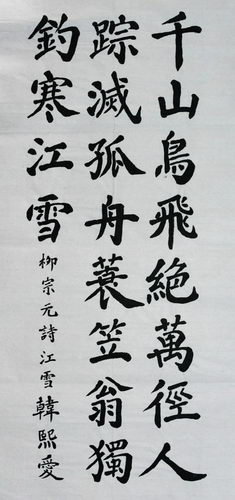 千山鳥飛絶萬徑人
踪滅孤舟蓑笠翁獨
釣寒江雪
柳宗元詩江雪韓熙愛